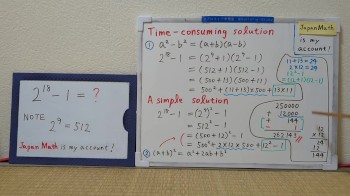 2¹⁸ − 1 = ?
NOTE
2⁹ = 512
Japan Math is my account!
Time-consuming solution
① a² − b² = (a+b)(a−b)
2¹⁸ − 1 = (2⁹+1)(2⁹−1)
= (512+1)(512−1)
= (500+13)(500+11)
= 500² + (11+13)×500 + 13×11
A simple solution
2¹⁸ − 1 = (2⁹)² − 1
= 512² − 1
= (500+12)² − 1
= 500² + 2×12×500 + 12² − 1
② (a+b)² = a² + 2ab + b²
Japan Math
is my
account!
11+13=24
2×12=24
12²−1
250000
12000
+ 144
− 1
262143
12
× 12
24
12
144